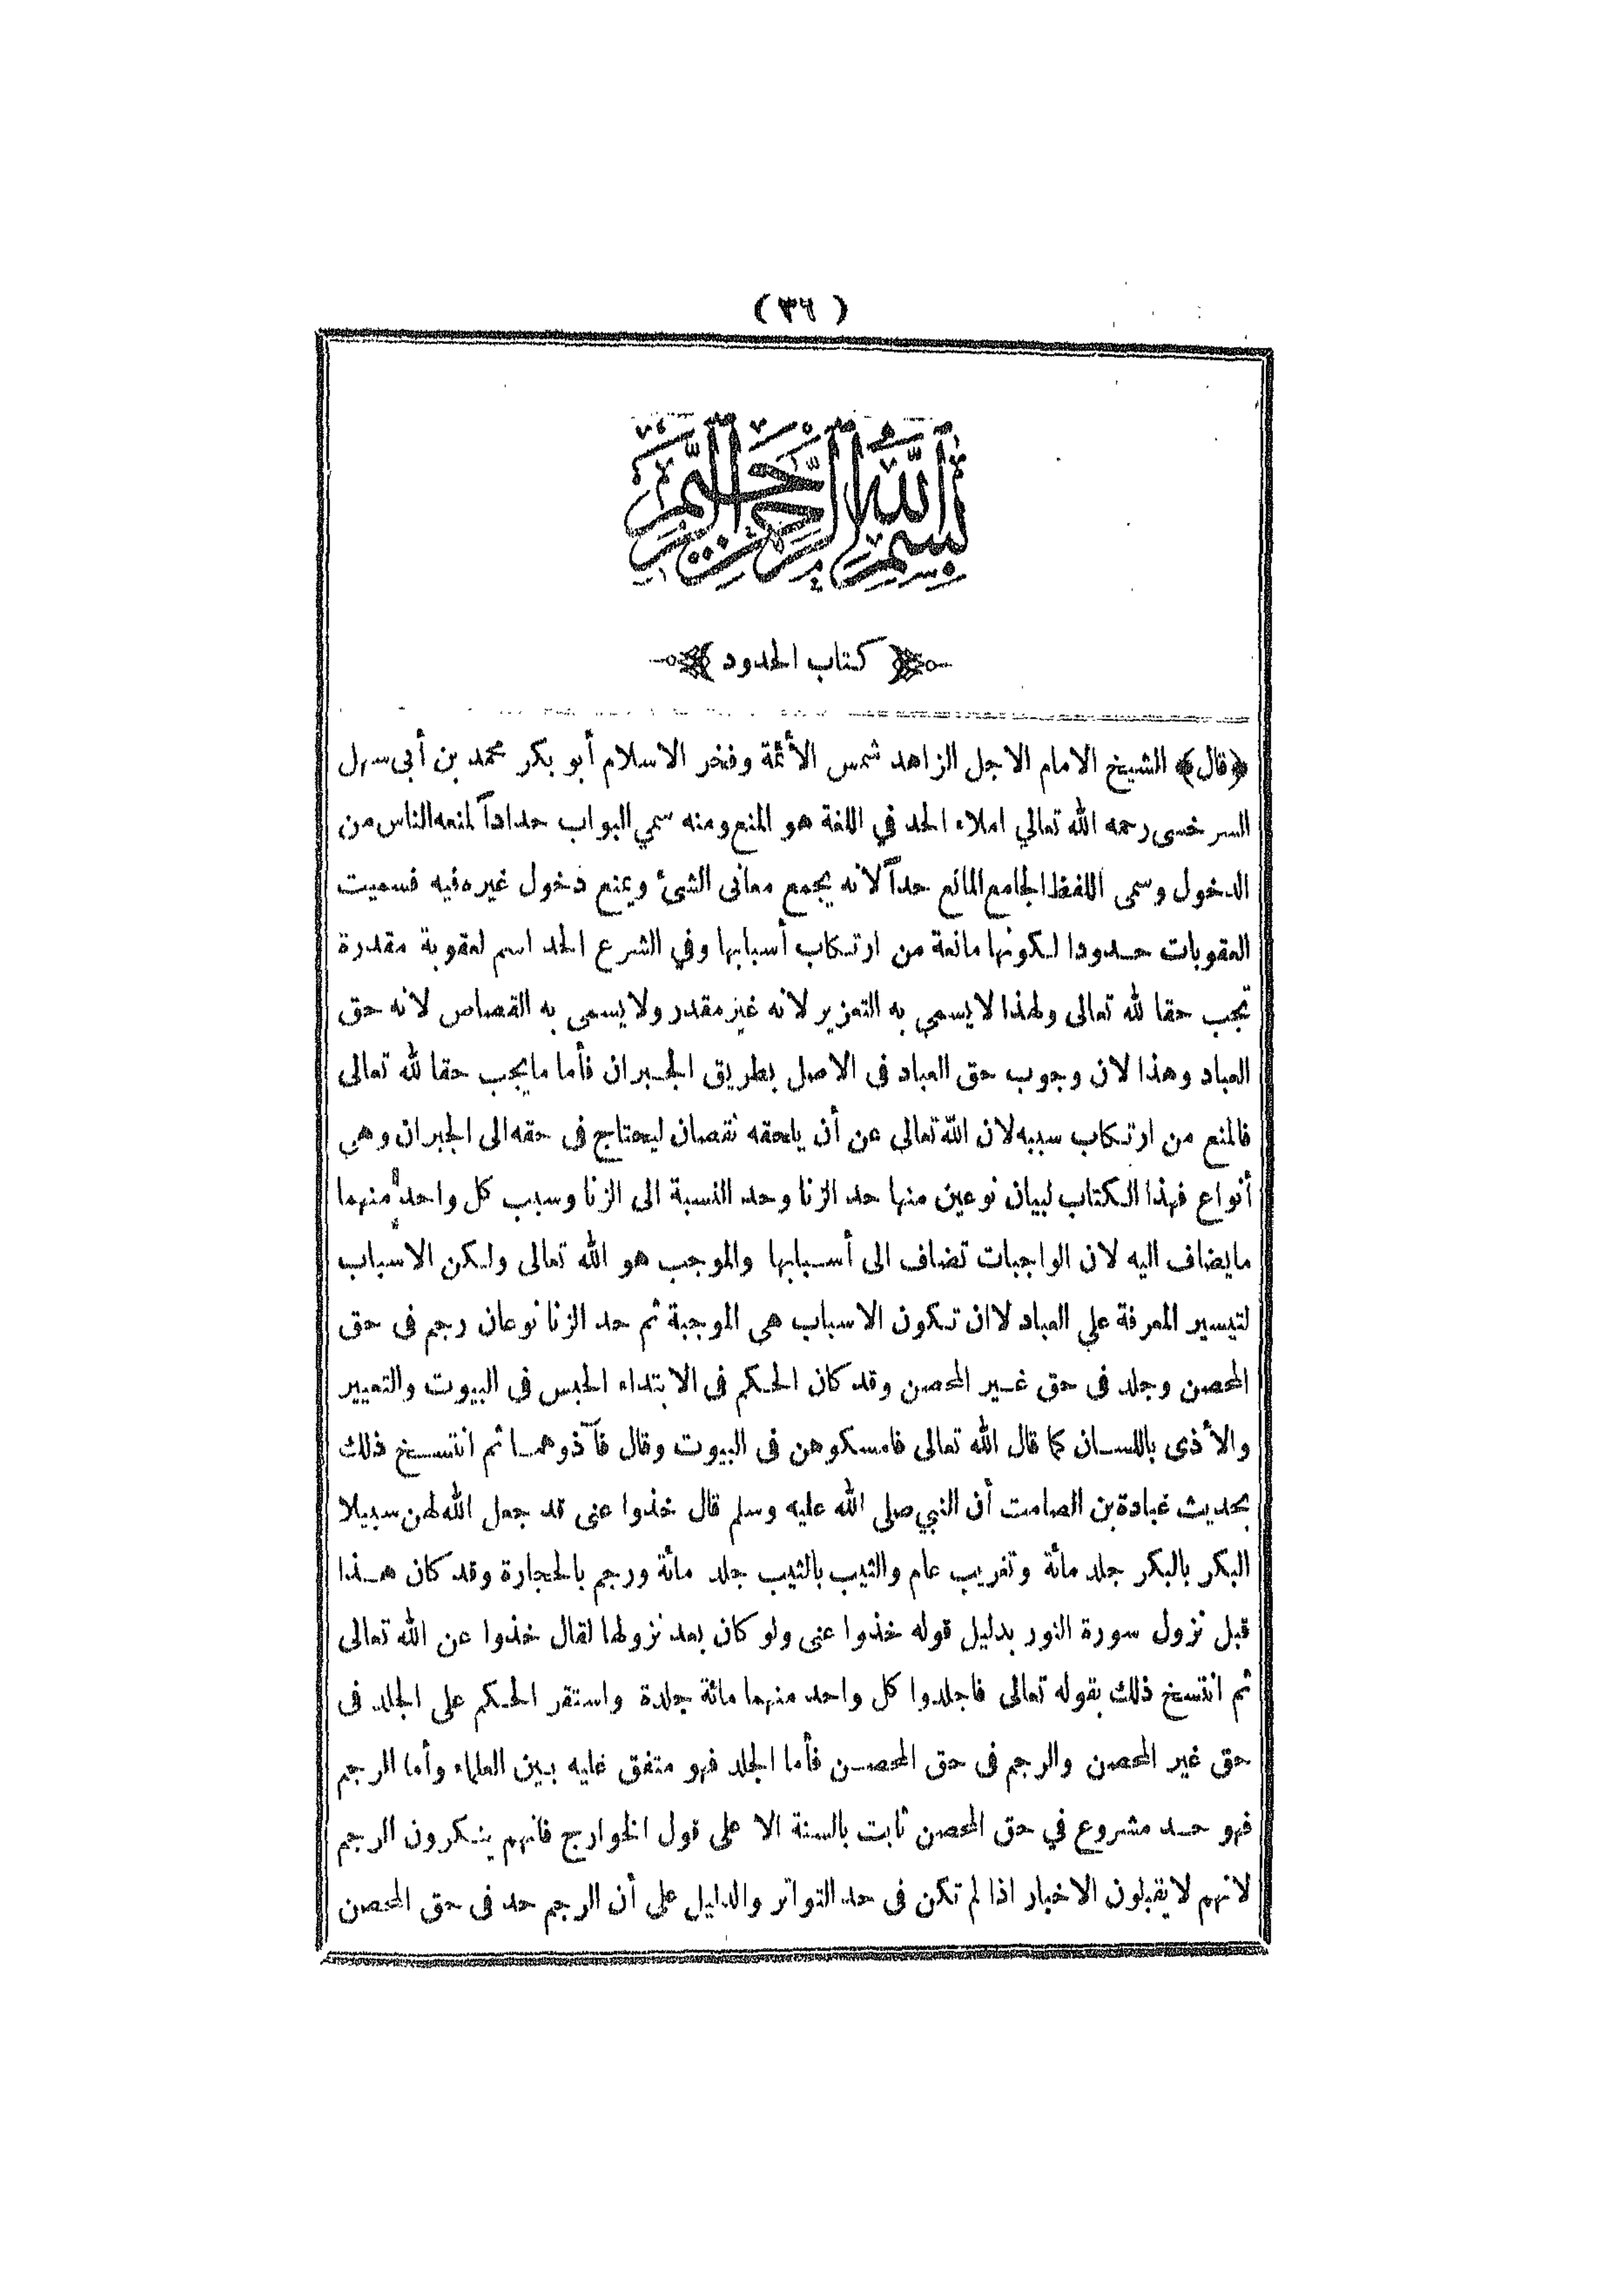 ( ٣٦ )
بسم الله الرحمن الرحيم
كتاب الحدود
﴿قال﴾ الشيخ الامام الاجل الزاهد شمس الأئمة وفخر الاسلام أبو بكر محمد بن أبى سهل
السرخسى رحمه الله تعالي املاء الحد في اللغة هو المنع ومنه سمي البواب حداداً لمنعه الناس من
الدخول وسمى اللفظ الجامع المانع حداً لانه يجمع معانى الشئ ويمنع دخول غيره فيه فسميت
العقوبات حدودا لكونها مانعة من ارتكاب أسبابها وفي الشرع الحد اسم لعقوبة مقدرة
تجب حقا لله تعالى ولهذا لا يسمي به التعزير لانه غير مقدر ولا يسمي به القصاص لانه حق
العباد وهذا لان وجوب حق العباد فى الاصل بطريق الجبران فأما ما يجب حقا لله تعالى
فالمنع من ارتكاب سببه لان الله تعالى عن أن يلحقه نقصان ليحتاج فى حقه الى الجبران وهي
أنواع فهذا الكتاب لبيان نوعين منها حد الزنا وحد النسبة الى الزنا وسبب كل واحد منهما
ما يضاف اليه لان الواجبات تضاف الى أسبابها والموجب هو الله تعالى ولكن الاسباب
لتيسير المعرفة علي العباد لا ان تكون الاسباب هى الموجبة ثم حد الزنا نوعان رجم فى حق
المحصن وجلد فى حق غير المحصن وقد كان الحكم فى الابتداء الحبس فى البيوت والتعيير
والأذى باللسان كما قال الله تعالى فامسكوهن فى البيوت وقال فآذوهما ثم انتسخ ذلك
بحديث عبادة بن الصامت أن النبي صلى الله عليه وسلم قال خذوا عنى قد جعل الله لهن سبيلا
البكر بالبكر جلد مائة وتغريب عام والثيب بالثيب جلد مائة ورجم بالحجارة وقد كان هذا
قبل نزول سورة النور بدليل قوله خذوا عنى ولو كان بعد نزولها لقال خذوا عن الله تعالى
ثم انتسخ ذلك بقوله تعالى فاجلدوا كل واحد منهما مائة جلدة واستقر الحكم على الجلد فى
حق غير المحصن والرجم فى حق المحصن فأما الجلد فهو متفق عليه بين العلماء وأما الرجم
فهو حد مشروع في حق المحصن ثابت بالسنة الا على قول الخوارج فانهم ينكرون الرجم
لانهم لا يقبلون الاخبار اذا لم تكن فى حد التواتر والدليل على أن الرجم حد فى حق المحصن